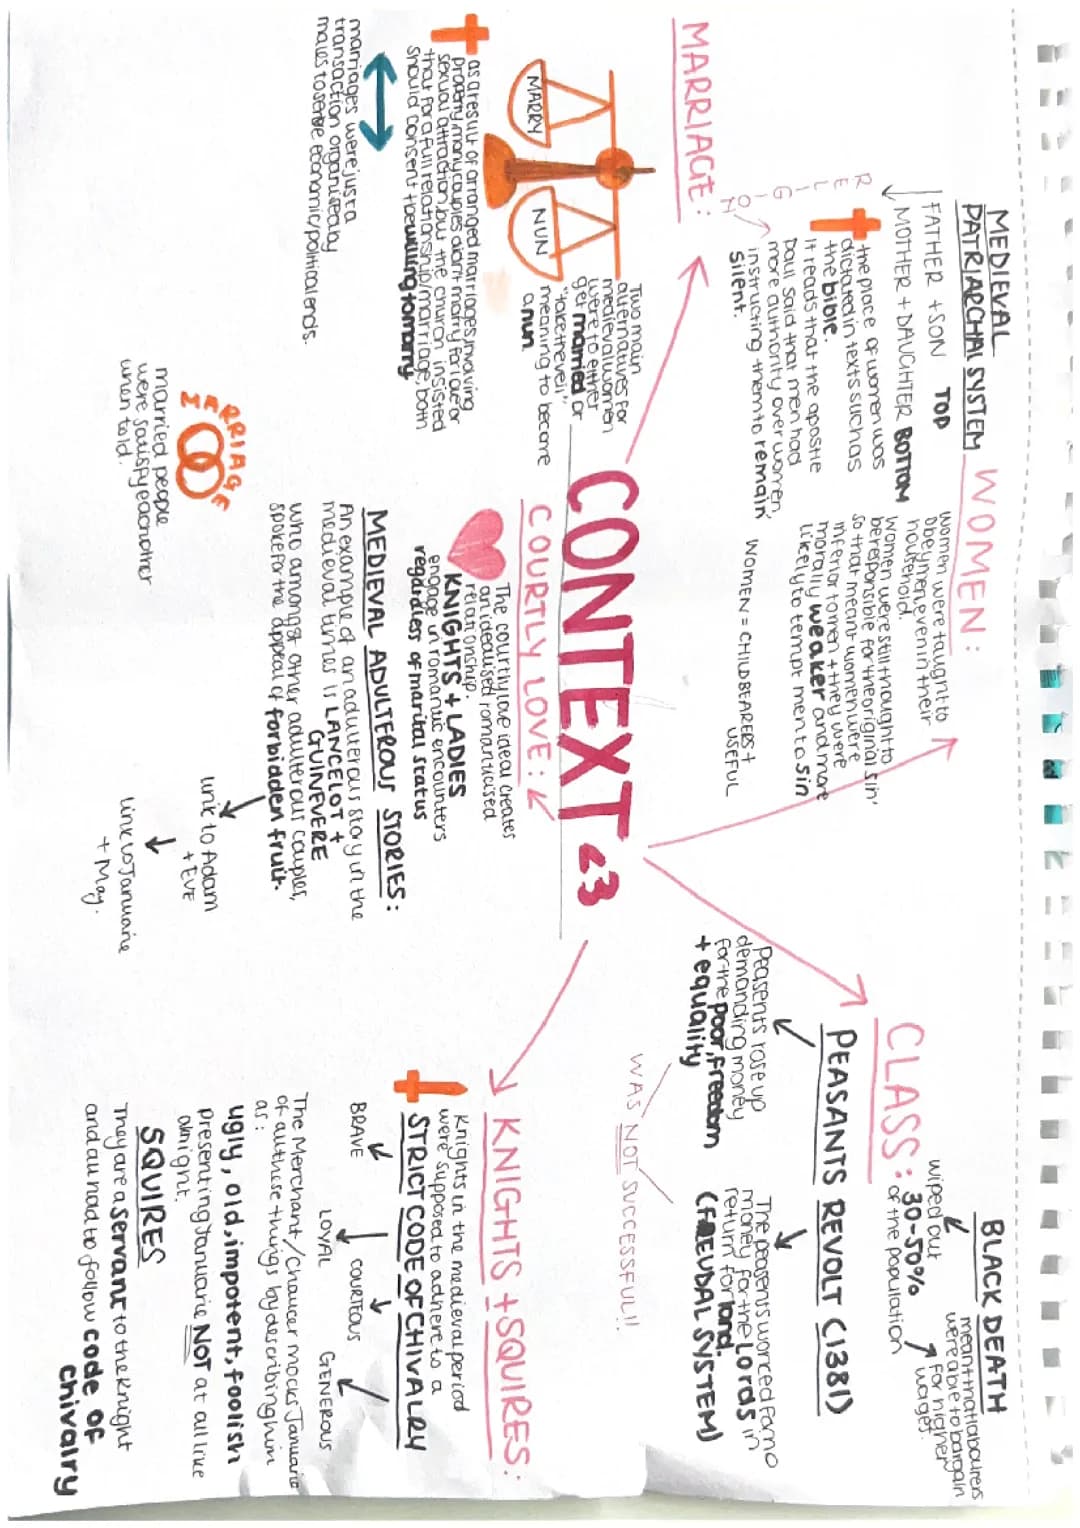 CONTEXT <3
MARRIAGE:
Two main
alternatives for
medieval women
were to either
get married or
"take the veil"
meaning to become
a nun.
MARRY
NUN
as a result of arranged marriages involving
property, many couples didn't marry for love or
sexual attraction, but the church insisted
that for a full relationship/marriage, both
should consent + be willing to marry
marriages were just a
transaction organised by
males to serve economic/political ends.
MARRIAGE
married people
were satisfy eachother
when told.
MEDIEVAL
PATRIARCHAL SYSTEM
FATHER + SON TOP
MOTHER + DAUGHTER BOTTOM
RELIGION
the place of women was
dictated in texts such as
the bible.
It reads that the apostle
Paul said that men had
more authority over women,
instructing them to remain
silent.
WOMEN:
women were taught to
obey men, even in their
household.
Women were still thought to
be responsible for the original sin'
so that meant women were
inferior to men + they were
morally weaker and more
likely to tempt men to sin
WOMEN = CHILDBEARERS +
USEFUL
COURTLY LOVE:
The courtly love ideal creates
an idealised romanticised
relationship.
KNIGHTS + LADIES
engage in romantic encounters
regardless of marital status
MEDIEVAL ADULTEROUS STORIES:
An example of an adulterous story in the
medieval times is LANCELOT +
GUINEVERE
who amongst other adulterous couples,
spoke for the appeal of forbidden fruit.
link to Adam
+ EVE
Link to Januarie
+ May.
CLASS:
BLACK DEATH
wiped out
30-50%
of the population
meant that labourers
were able to bargain
for higher
wages.
PEASANTS REVOLT (1381)
Peasents rose up
demanding money
for the poor, freedom
+ equality
The peasents worked famo
money for the Lords in
return for land.
(FREUDAL SYSTEM)
WAS NOT SUCCESSFUL!!
KNIGHTS + SQUIRES:
Knights in the medieval period
were supposed to adhere to a
STRICT CODE OF CHIVALRY
BRAVE
LOYAL
COURTEOUS
GENEROUS
The Merchant/Chaucer mocks Januarie
of all these things by describing him
as:
ugly, old, impotent, foolish
presenting Januarie NOT at all like
a knight.
SQUIRES
They are a servant to the knight
and all had to follow code of
chivalry